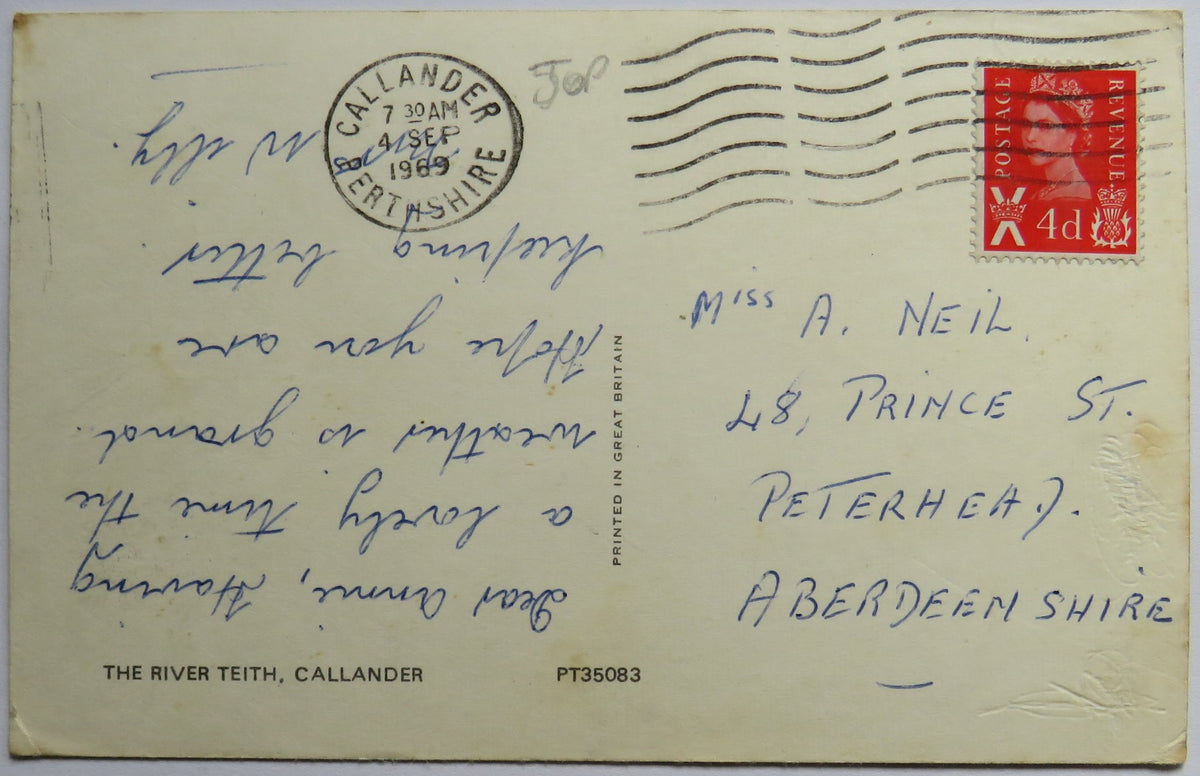 CALLANDER
7 30 AM
4 SEP
1969
PERTHSHIRE
50P
POSTAGE
REVENUE
4d
Miss A. NEIL.
48, PRINCE ST.
PETERHEAD.
ABERDEENSHIRE
PRINTED IN GREAT BRITAIN
Dear Annie, Having
a lovely time the
weather is grand.
Hope you are
keeping better.
THE RIVER TEITH, CALLANDER
PT35083